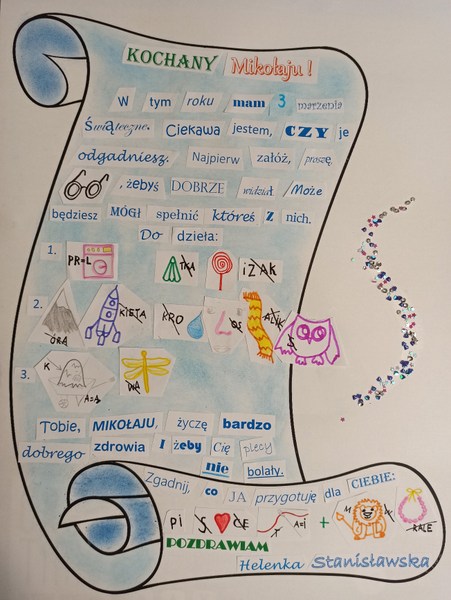 KOCHANY Mikołaju!
W tym roku mam 3 marzenia
Świąteczne. Ciekawa jestem, CZY je
odgadniesz. Najpierw załóż, proszę
, żebyś DOBRZE widział. Może
będziesz MÓGŁ spełnić któreś z nich.
Do dzieła:
1. PR=L TKA IZAK
2. ÓRA KIETA KRO OS ALIK S
3. K A=Ą WA
Tobie, MIKOŁAJU, życzę bardzo
dobrego zdrowia I żeby Cię plecy
nie bolały.
Zgadnij, co JA przygotuję dla CIEBIE:
PI S CE + M W RALE
POZDRAWIAM
Helenka Stanisławska